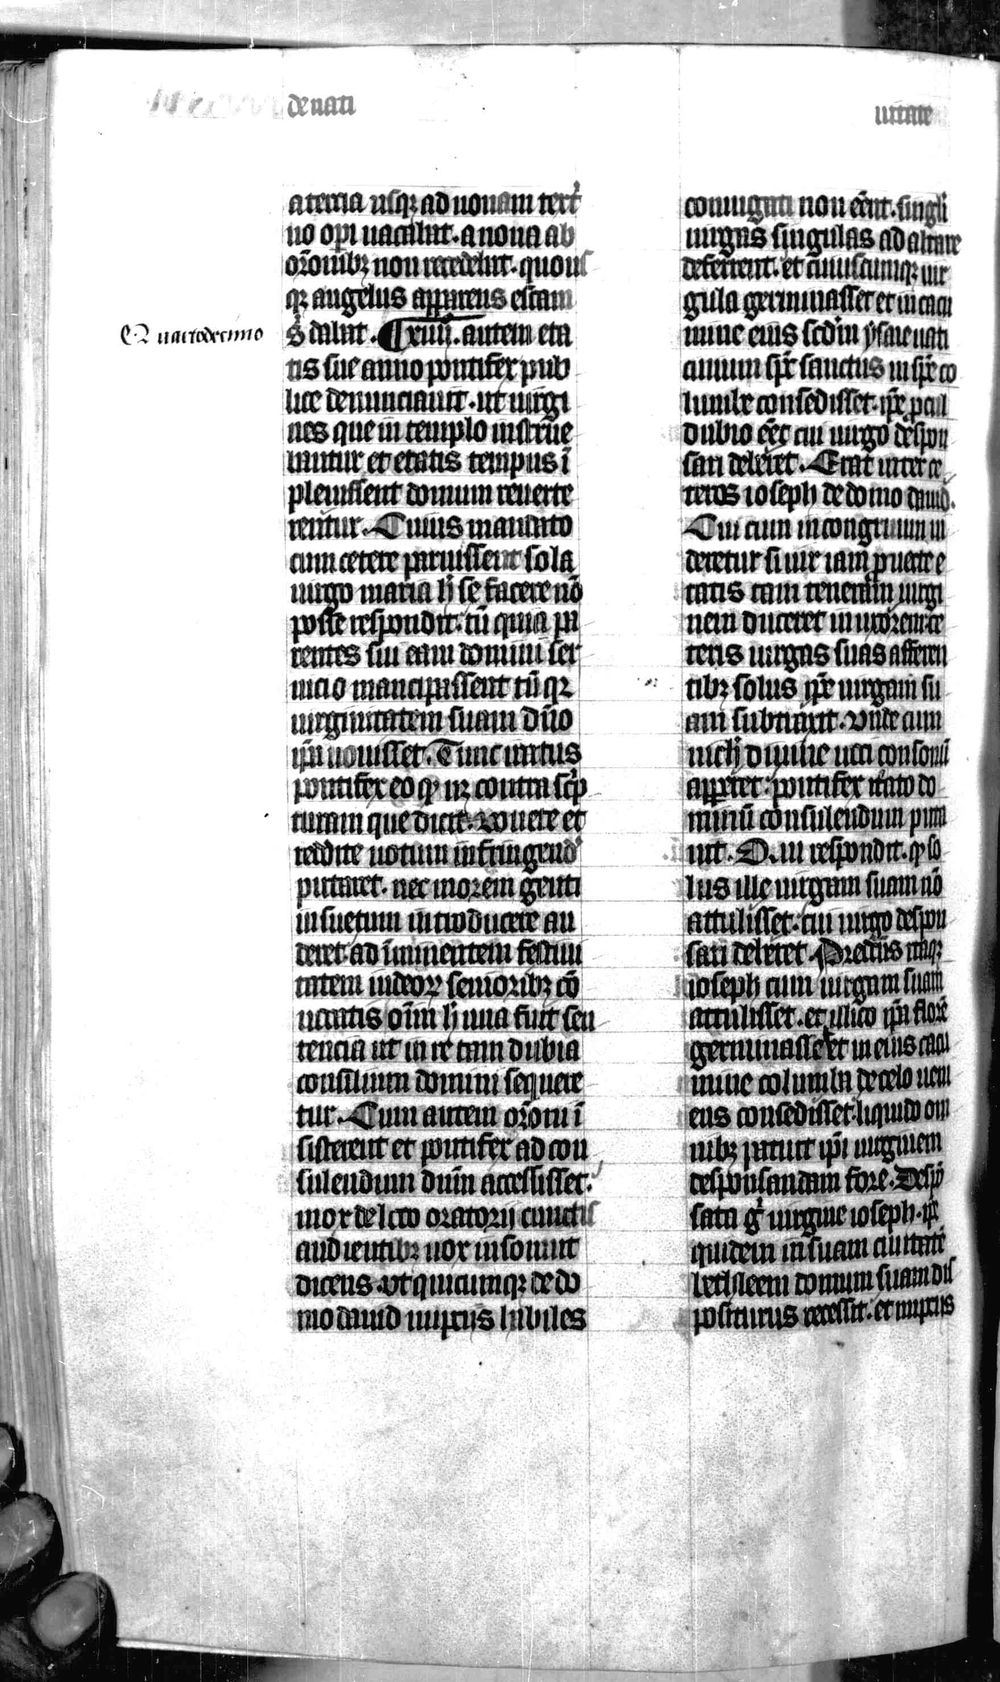 de nati
uitate
a tercia usqꝫ ad nonam text͛
no op̲i uacabat. a nona ab
or̄onibꝫ non recedebat. quous
qꝫ angelus apparens escam
s͛ dabat. ¶xiiij. autem eta
Quartodecimo
tis sue anno pontifex pub
lice denunciauit. ut uirgi
nes que in templo instrue
bantur et etatis tempus ī
pleuissent domum reuerte
rentur. Cuius mandato
cum cetere paruissent sola
uirgo maria h̄ se facere nō
posse respondit. tū quia pa
rentes sui eam domini ser
uicio mancipassent tū qꝫ
uirginitatem suam dn̄o
ip̄a uouisset. Tunc
pontifex eo ꝙ nꝫ contra sc̄p
turam que dicit. vouete et
reddite uotum infringend͛
putaret. nec morem genti
insuetum introducere au
deret. ad īminentem festiui
tatem iudeoꝝ senioribꝫ cō
uocatis oīm h̄ una fuit sen
tencia ut in re tam dubia
consilium domini quere
tur. Cum autem or̄oni ī
sisterent et pontifex ad con
sulendum dn̄m accessisset.
mox de loco oratorij cunctis
audientibꝫ uox insonuit
dicens. vt quicumqꝫ de do
mo dauid nupcijs habiles
coniugati non eēnt. singl̄i
uirgas singulas ad altare
deferrent. et cuiuscumqꝫ uir
gula germinasset et in cacu
mine eius scd̄m ysaie uati
cinium sp̄c sanctus in sp̄e co
lumbe consedisset. ip̄e p̲cul
dubio eēt cui uirgo despon
sari deberet. Erat inter ce
teros ioseph de domo dauid.
Cui cum incongruum ui
deretur si uir iam p̲uecte e
tatis tam teneram uirgi
nem duceret in uxorem. ce
teris uirgas suas afferen
tibꝫ solus ip̄e uirgam su
am subtraxit. Vnde cum
nichil diuine uoci consonū
apparet. pontifex it͛ato do
minū consulendum puta
uit. Qui respondit. ꝙ so
lus ille uirgam suam nō
attulisset. cui uirgo despon
sari deberet. Predc̄us itaqꝫ
ioseph cum uirgam suam
attulisset. et ilico ip̄a florē
germinasset et in eius cacu
mine columba de celo ueni
ens consedisset. liquido om
nibꝫ patuit ip̄i uirginem
desponsandam fore. Despō
sata g͛ uirgine ioseph. ip̄e
quidem in suam ciuitatē
bethleem domum suam dis
positurus recessit. et nupcijs